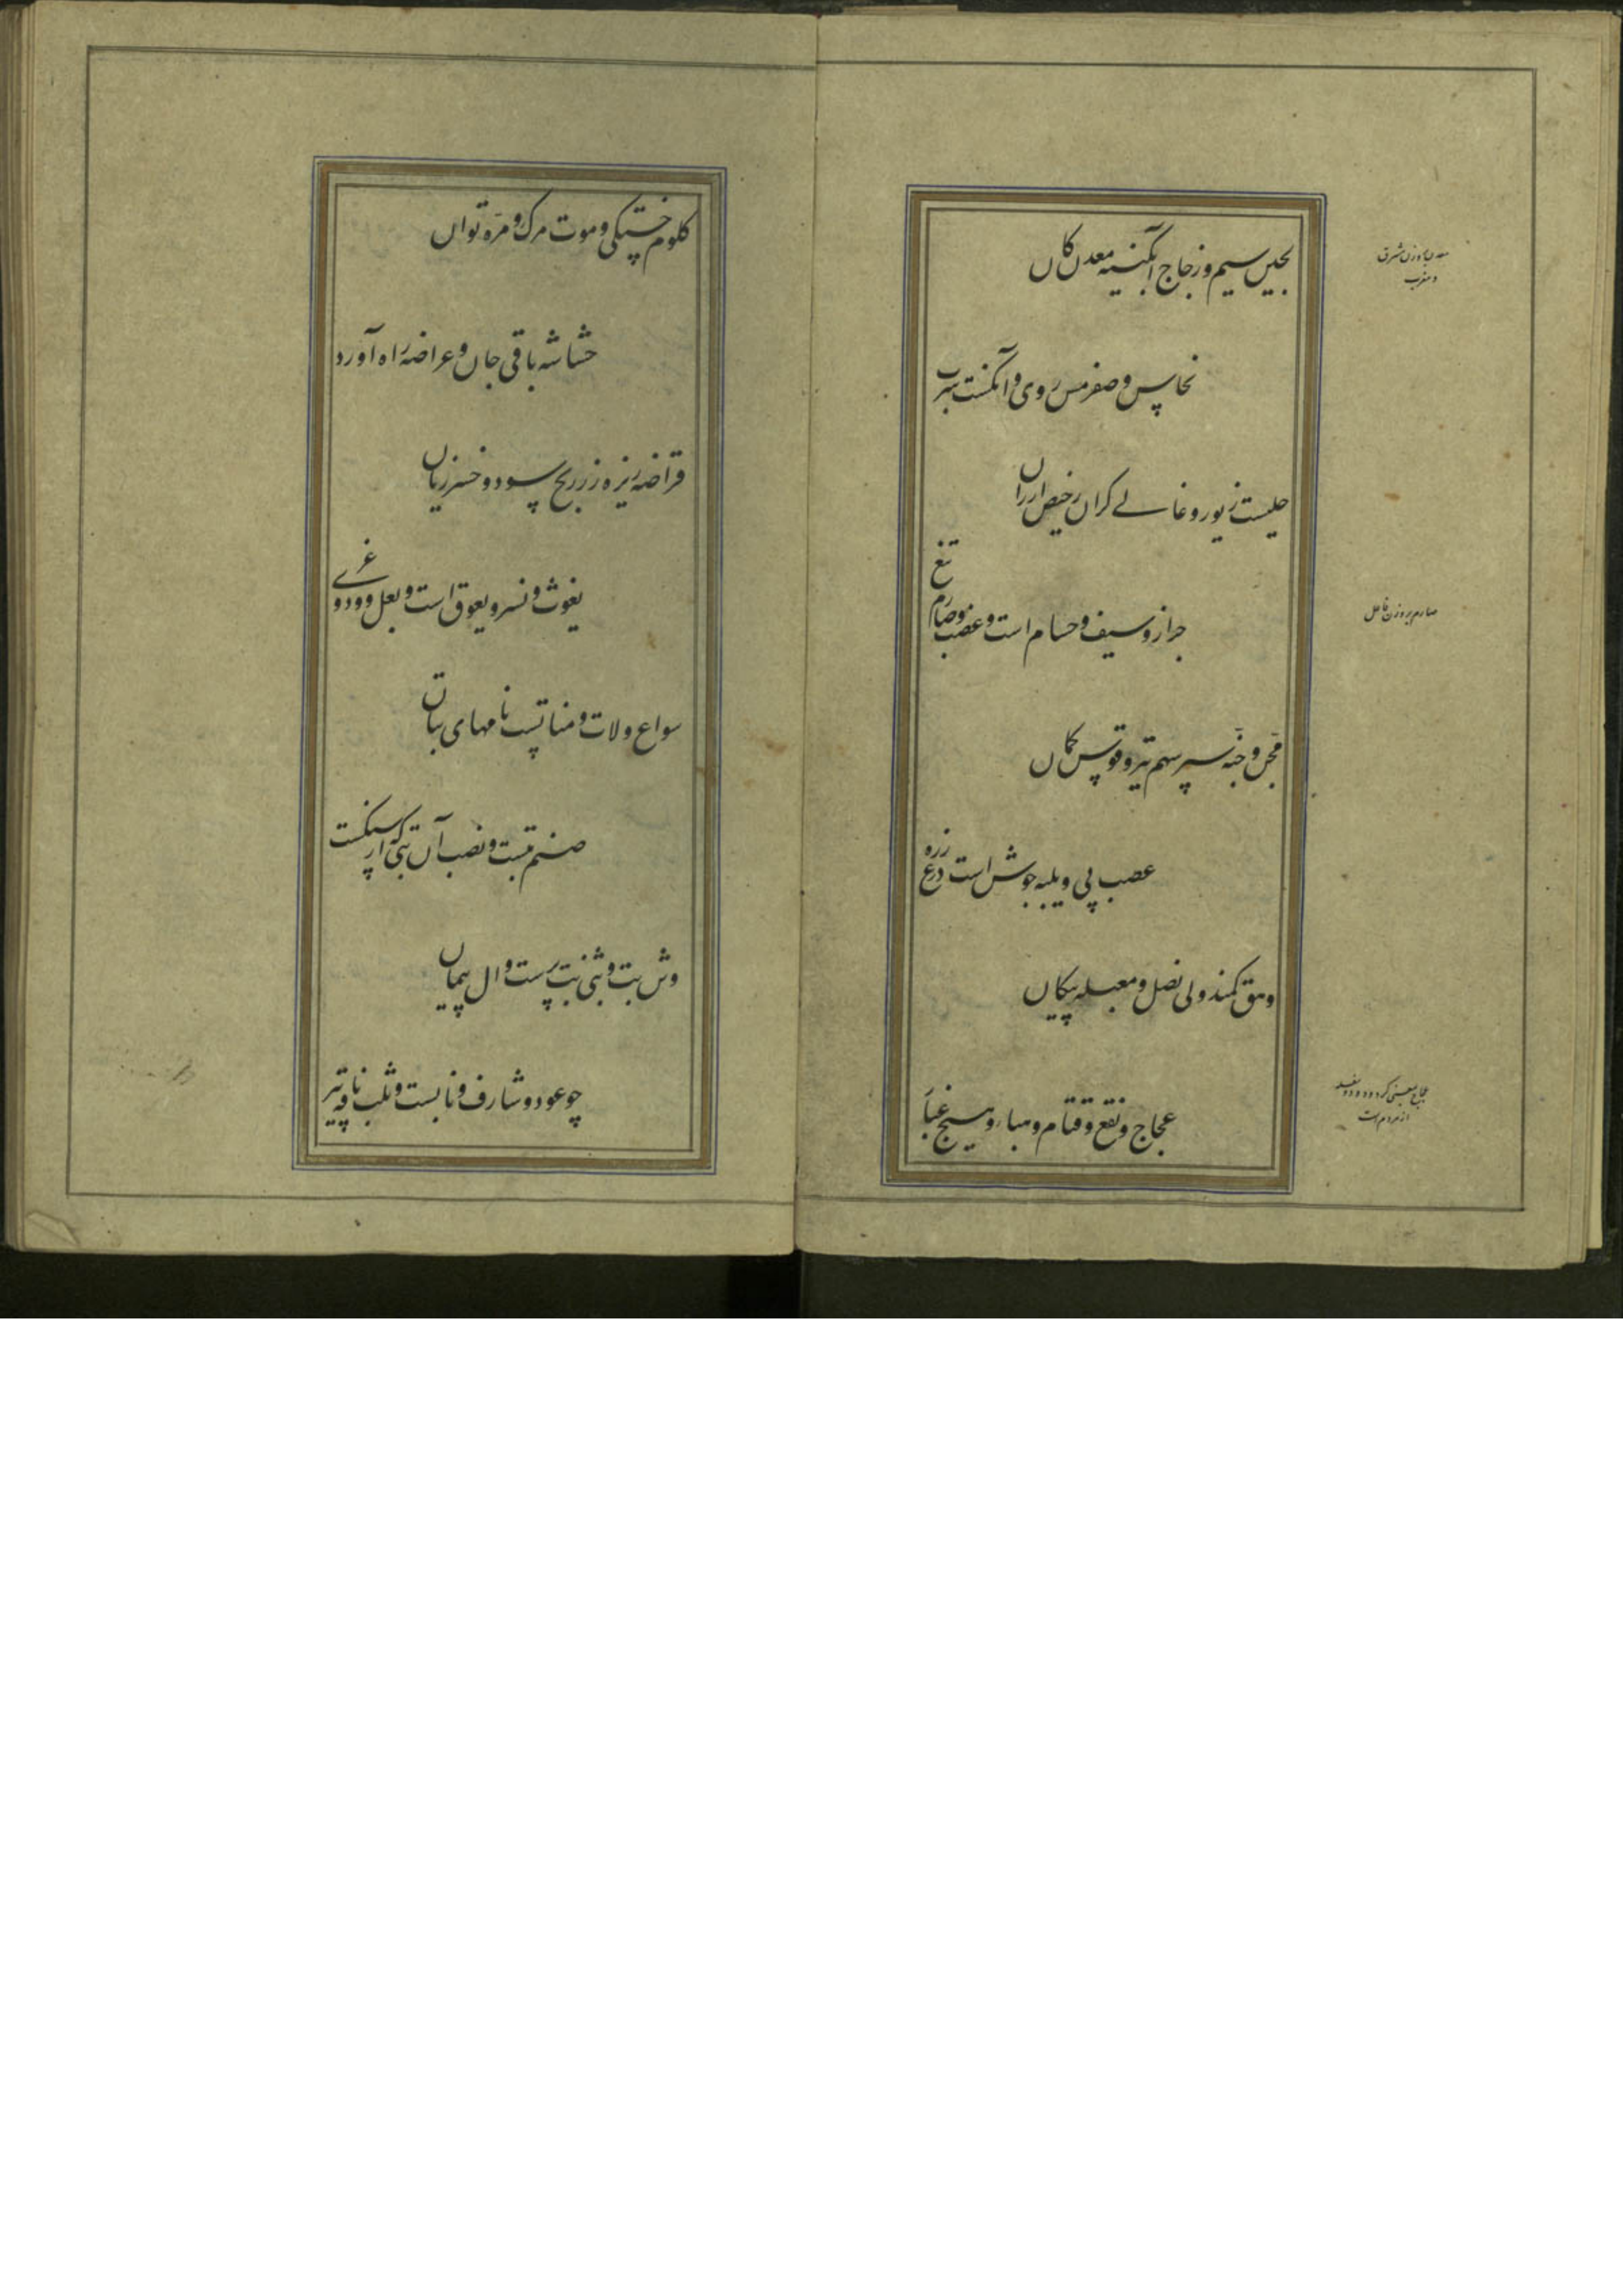 لجین سیم و زجاج آبگینه معدن کان
نحاس و صفر مس و روی و آنکست سرب
حلیست زیور و غالے کران رخیص ارزان
جراز و سیف و حسام است و عضب و صارم تیغ
مجن و جنه سپر سهم تیر و قوس کمان
عصب پی و یلبه جوشن است درع زره
وهق کمند ولی نصل و معبله پیکان
عجاج و نقع و قتام و هباء و هیج غبار
معدن بوزن مشرق
و مغرب
صارم بر وزن فاعل
عجاج بمعنی کرد و دود و
از مردم است
کلوم خستگی و موت مرک و مره توان
حشاشه باقی جان و عراضه راه آورد
قراضه ریزه زر ربح سود و خسر زیان
یغوث و نسر و یعوق است و بعل و ود و عزے
سواع و لات و منات است نامهای بتان
صنم بتست و نصب آن بتی که از سنگست
وثن بت و وثنی بت پرست و ال پیمان
چو عود و شارف و نابست و ثلب ناقه پیر